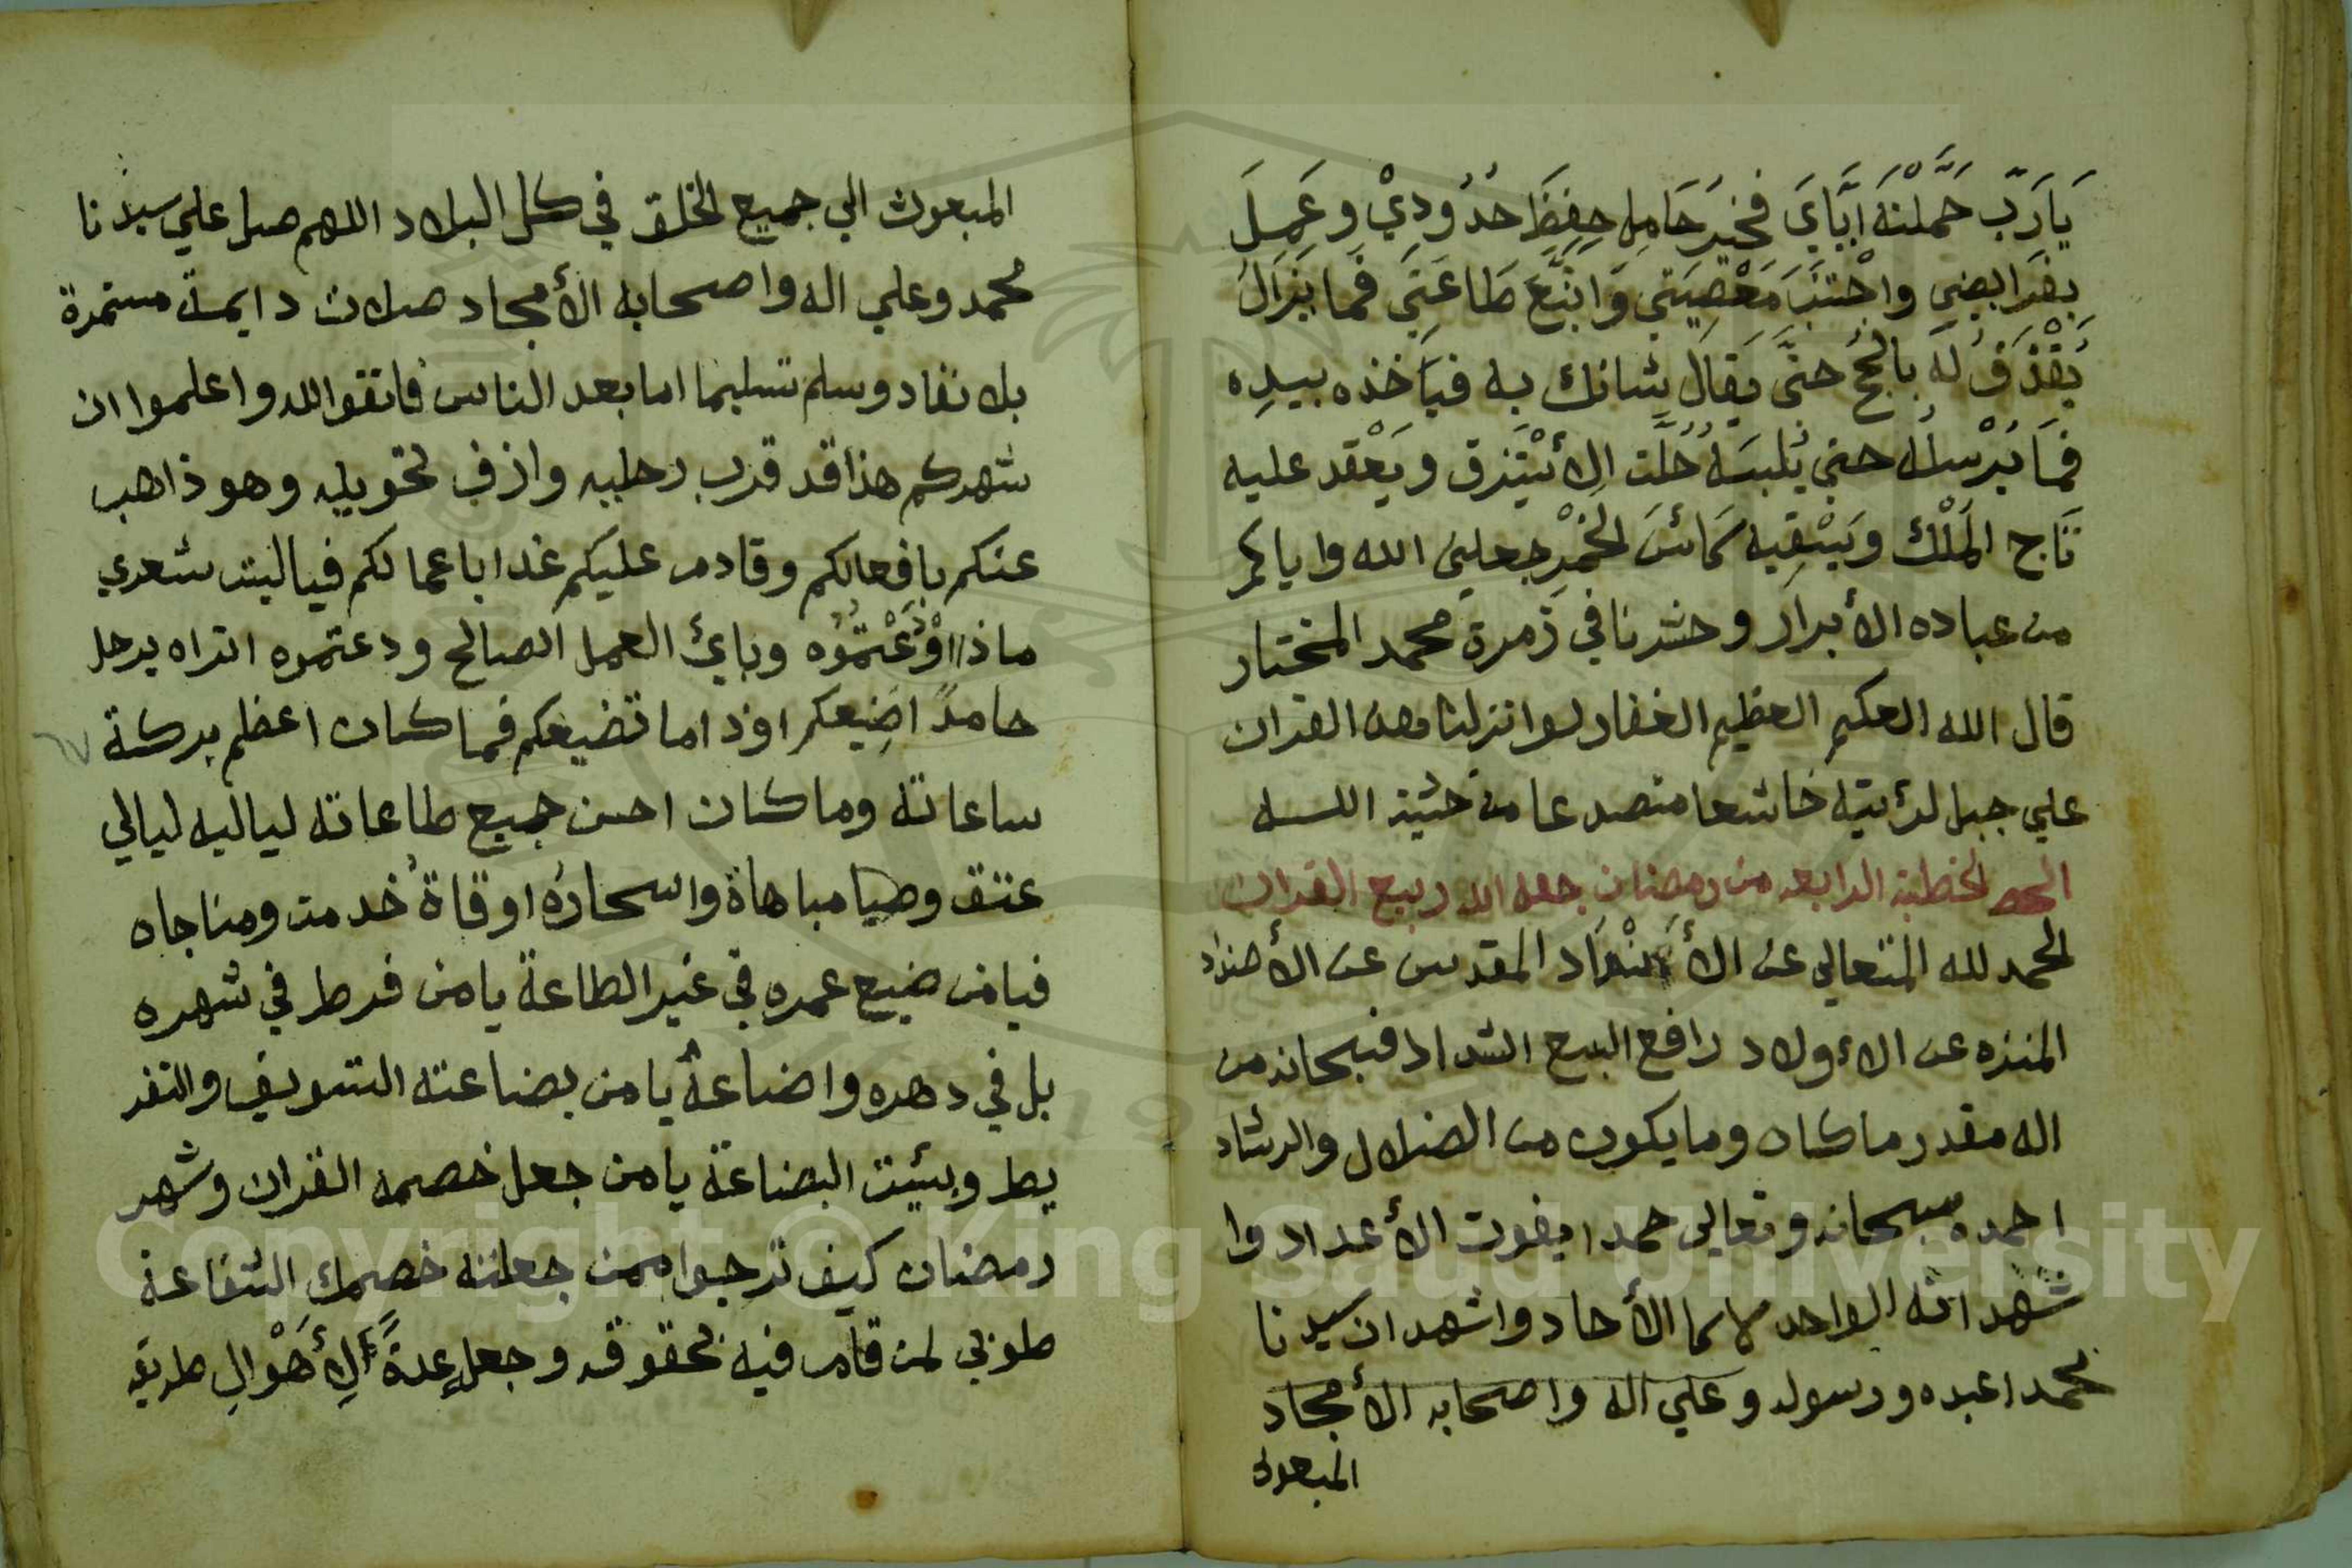 يَا رَبّ حَمَّلْتَهُ اِيَّايَ فخيرَ حَامِلٍ حِفِظَ حُدُودِيْ وعَمِلَ
بِفَرَايضِي واجْتنَبَ مَعْصِيَتي وَاتَّبَعَ طَاعَتِي فَما يَزَالُ
يَقْذفُ لَه بالحُجَج حتَّى يقال شانك به فيَاخذه بيدِه
فمَا يُرْسِلُه حتي يُلبسَهُ حُلَّت الأسْتبرق ويَعْقد عليه
تَاج المَلْك ويَسْقِيه كَائسَ الخمْرِ جعلني الله واياكم
من عباده الأبرار وحشرنا في زمرة محمد المختار
قال الله العكيم العظيم الغفار لو انزلنا هذه القران
علي جبل لرئيته خاشعا متصدعا من خشية اللــه
الخطبة الرابعه من رمضان جعل الله ربيع القران
الحمد لله المتعالي عن الأنْدَاد المقدس عن الأضداد
المنزه عن الاءولاد رافع السبع الشداد فسبحانه من
اله مقدر ما كان وما يكون من الضلال والرشاد
احمده سبحانه وتعالي حمدا يفوت الأعداد وا
شهد انه الواحد لا كما الأحاد واشهد ان سيدنا
محمدا عبده ورسوله وعلي اله واصحابه الأمجاد
المبعوث
المبعوث الي جميع الخلق في كل البلاد اللهم صل علي سيدنا
محمد وعلي اله واصحابه الأمجاد صلات دايمة مستمرة
بلا نفاد وسلم تسليما اما بعد الناس فاتقوا الله واعلموا ان
شهركم هذا قد قرب رحليه وازف تحويله وهو ذاهب
عنكم بافعالكم وقادم عليكم غدا باعمالكم فيا ليت شعري
ماذا اوْدَعْتمُوُه وبائ العمل الصالح ودعتموه اتراه يرحل
حامدً اضِيعكم اوذاما تضيعكم فما كان اعظم بركة
ساعاته وما كان احسن جميع طاعاته لياليه ليالي
عتق وصيا مباهاة واسحارُه اوقاةُ خدمت ومناجاه
فيا من ضيع عمره في غير الطاعة يا من فرط في شهره
بل في دهره واضاعهُ يا من بضاعته التسويف والتفر
يط وبئيت البضاعة يا من جعل خصمه القران وشهر
رمضان كيف ترجوا ممن جعلته خصمك الشفاعة
طوبي لمن قام فيه بحقوقه وجعل عدةً الأهْوالِ طريقه